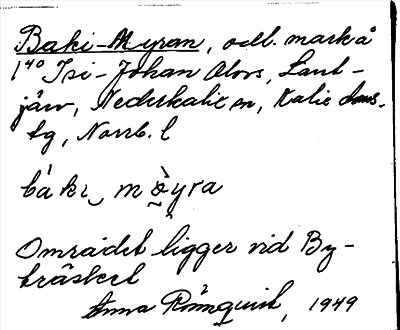 Baki-Myran, odl. mark å
1⁴⁰ Isi-Johan Alors, Lant-
järv, Nederkalix sn, Kalix
tg, Norrb. l
Området ligger vid By-
träsket
Anna Rönnquist, 1949